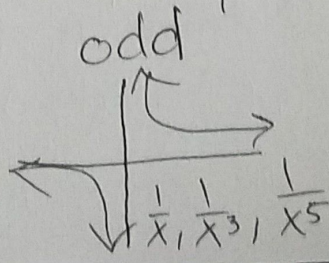 odd
1/x, 1/x³, 1/x⁵